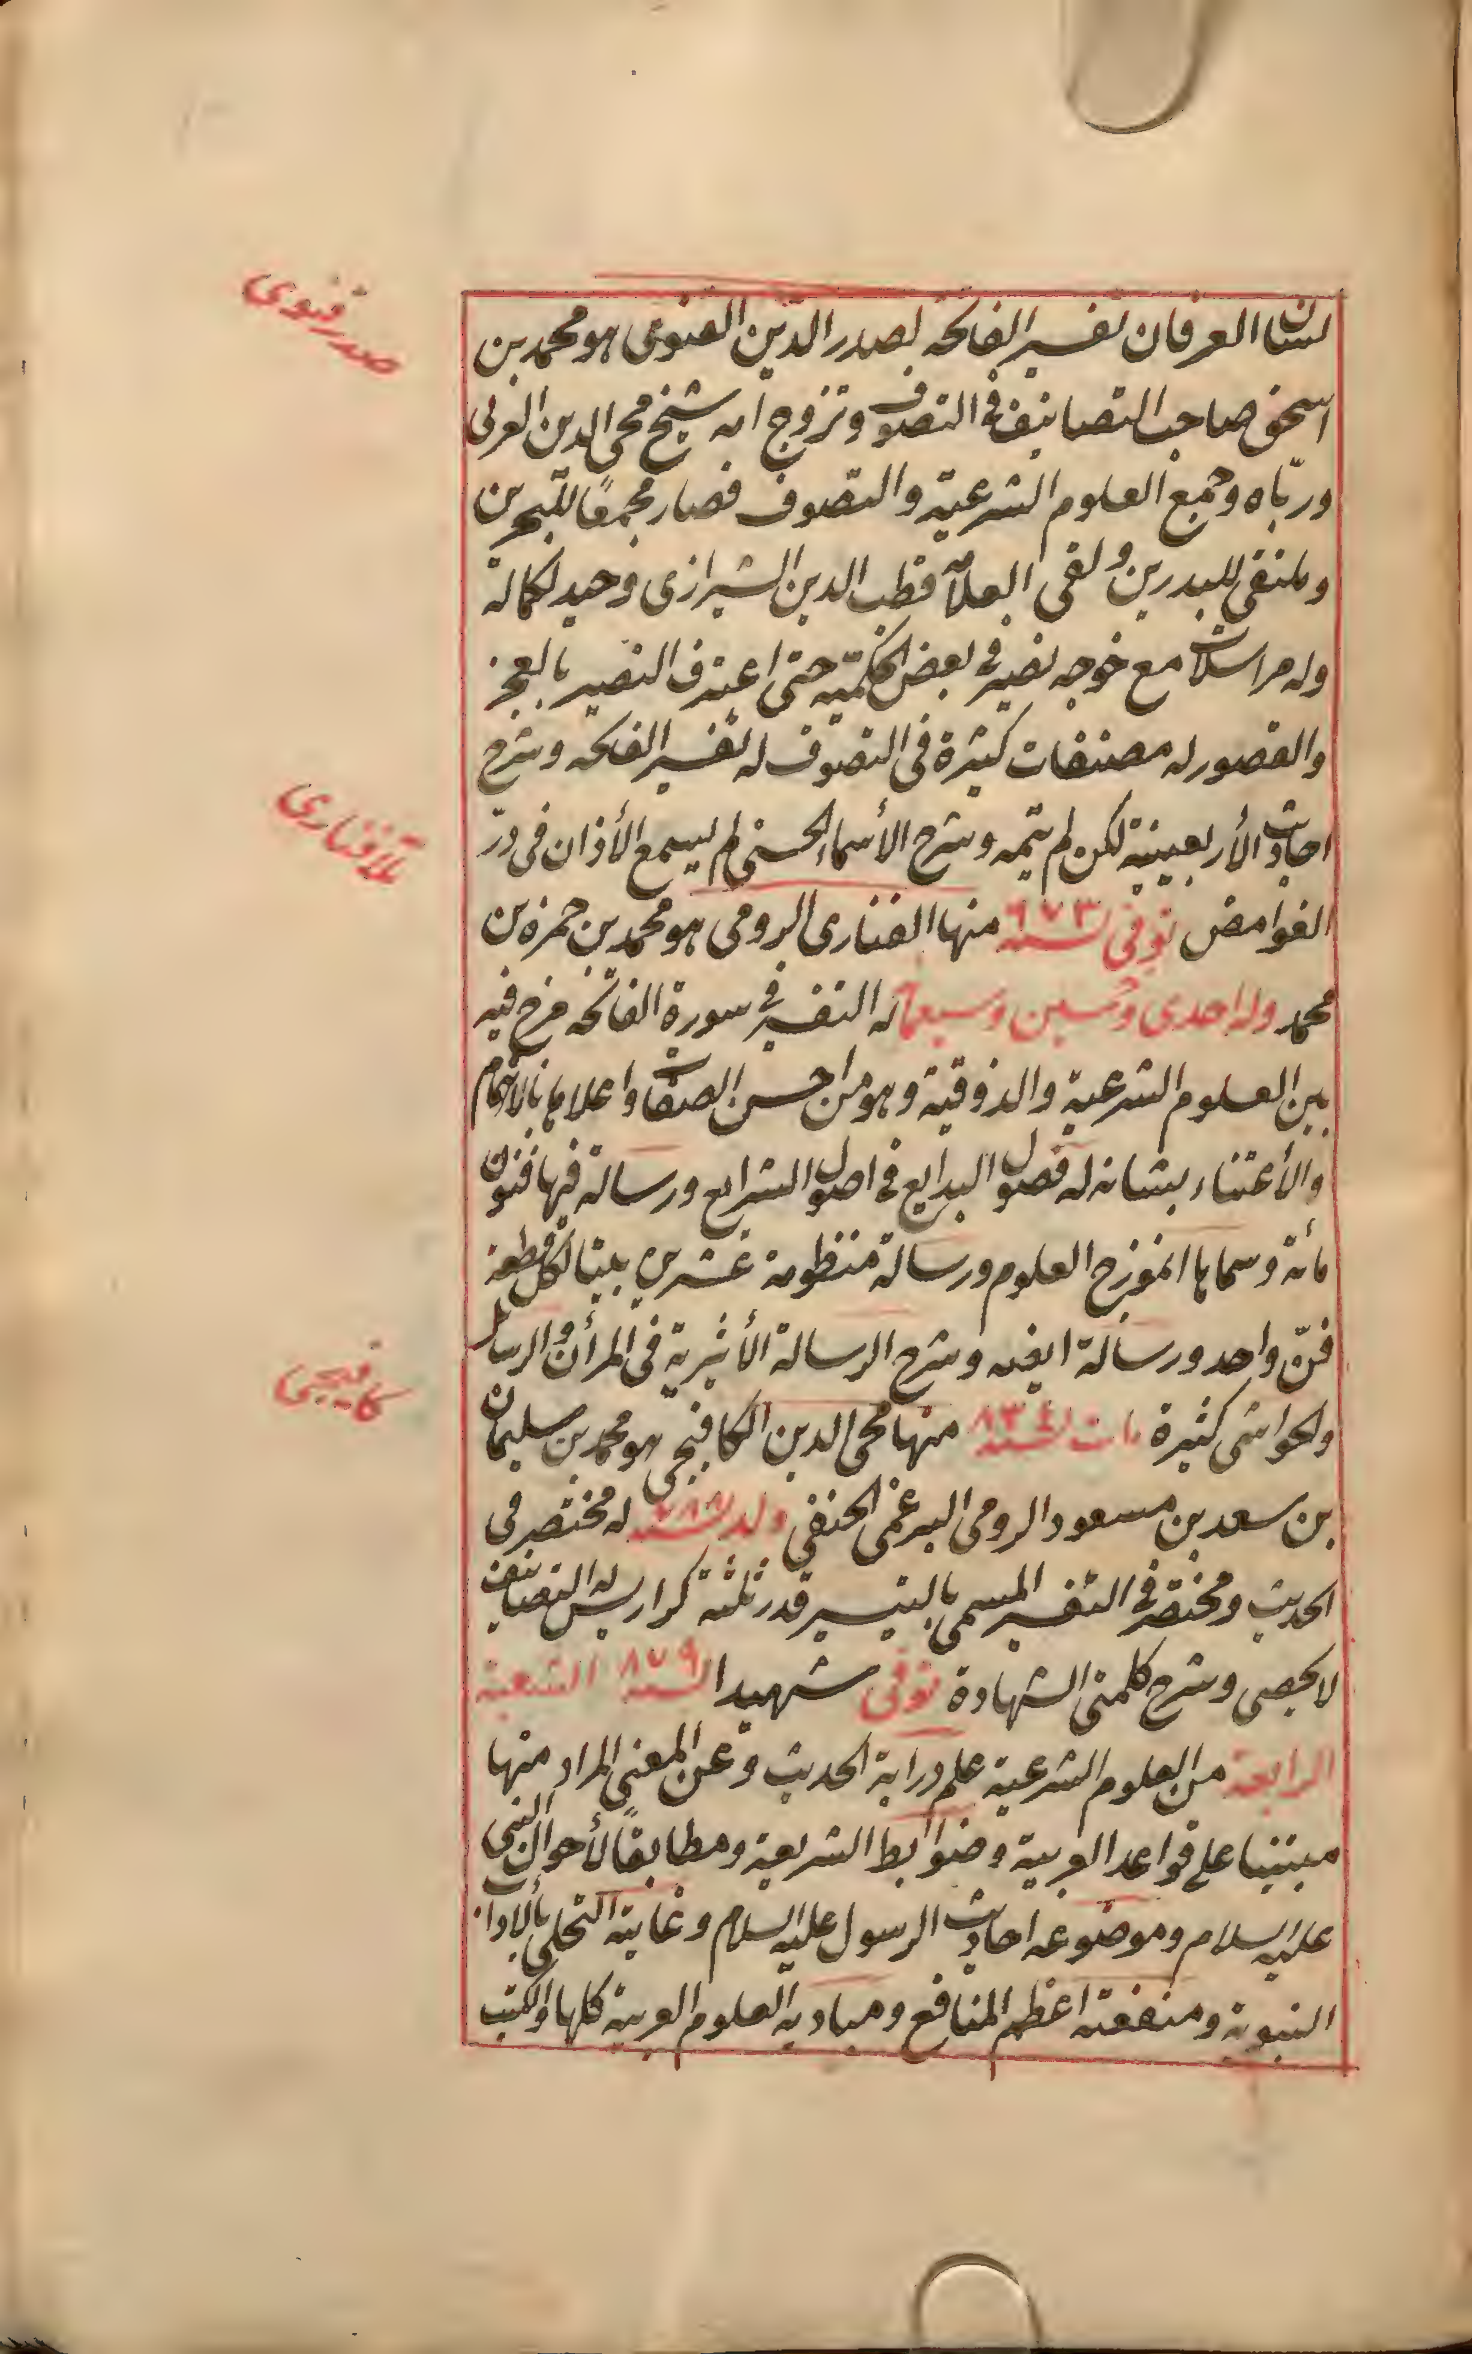 صدر قنوى
لسان العرفان تفسير الفاتحه لصدر الدّين القنوى هو محمد بن
اسحق صاحب التصانيف فى التصوف وتزوج امه شيخ محى الدين العربى
وربّاه وجمع العلوم الشرعية والتصوف فصار مجمعًا للبحرين
وملتقى للبدرين ولقى العلامّة قطب الدين الشيرازى وحيد لكماله
وله مراسلات مع خوجه نصير فى بعض الحكميّه حتى اعترف النصير بالعجز
والقصور له مصنفات كثيرة فى التصوف له تفسير الفاتحه وشرح
احاديث الأربعينية لكن لم يتمه وشرح الأسماء الحسنى لم يسمع الأذان فى درّ
ملا فنارى
الغوامض توفى لسنه ٦٧٣ منها الفنارى الرومى هو محمد بن حمزه بن
محمد ولد احدى وخمسين وسبعمائة له التفسير فى سورة الفاتحه مزج فيه
بين العلوم الشرعية والذوقية وهو من احسن الصفات واعلاها بالاهتمام
والأعتناء بشانه له فصول البدايع فى اصول الشرايع ورسالة فيها فنون
مأئة وسماها انموزج العلوم ورسالة منظومة عشرين بيتا لكل قطعة
فنّ واحد ورسالة ايضه وشرح الرسالة الأثيرية فى المرأن والرسائل
كافيجى
والحواشى كثيرة مات لسنه ٨٣٤ منها محى الدين الكافيجى هو محمد بن سليمان
بن سعد بن مسعود الرومى البرغمى الحنفى ولد لسنه ٧٨٨ له مختصر فى
الحديث ومختصر فى التفسير المسمى بالتيسير قدر ثلثة كراريس له التصانيف
لا يحصى وشرح كلمتى الشهادة توفى شهيدا لسنه ٨٧٩ الشعبة
الرابعة من العلوم الشرعية علم دراية الحديث وعن المعنى المراد منها
مبتنيا على قواعد العربية وضوابط الشريعة ومطابقًا لأحوال النبى
عليه السلام وموضوعه احاديث الرسول عليه السلام وغايته التحلى بالاداب
النبوية ومنفعته اعظم المنافع ومباديه العلوم العربية كلها والكتب